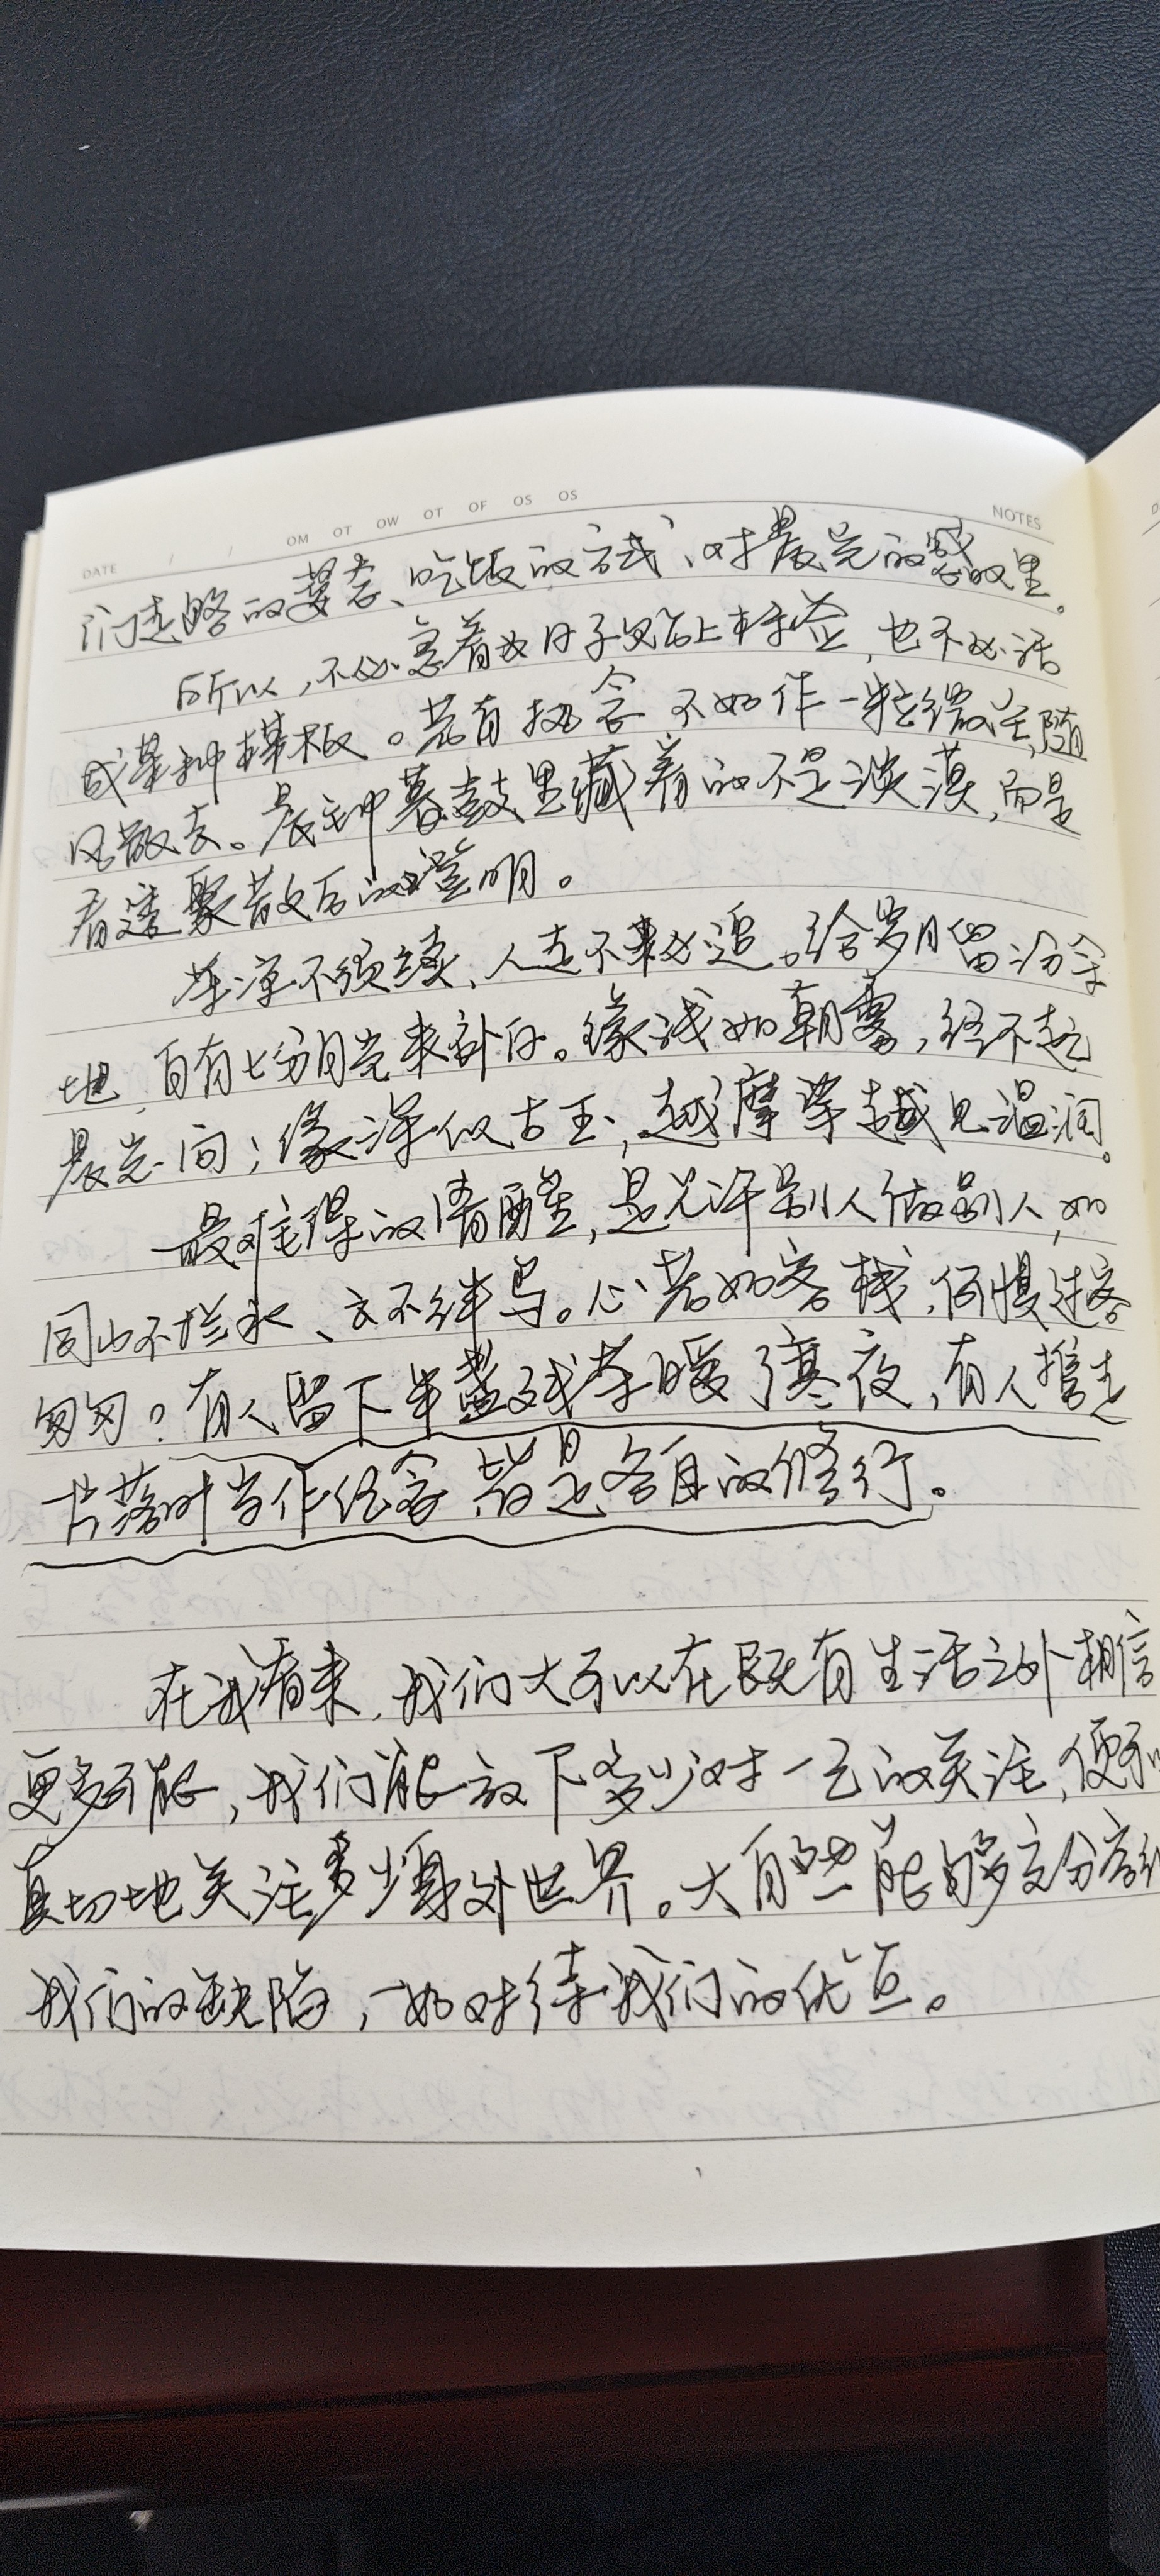 DATE / / OM OT OW OT OF OS OS NOTES
们走路的姿态、吃饭的方式、对晨光的感叹里。
所以,不必急着为日子贴上标签,也不必活
成某种模板。若有执念 不如作一粒微尘,随
风散去。晨钟暮鼓里藏着的不是淡漠,而是
看透聚散后的澄明。
茶凉不须续、人走不必追。给岁月留三分余
地,自有七分月光来补白。缘浅如朝露,经不起
晨光一问;缘深似古玉,越摩挲越见温润。
最难得的清醒,是允许别人做别人,如
同山不拦水、云不绊鸟。心若如客栈,何惧过客
匆匆?有人留下半盏残茶暖了寒夜,有人携走
片落叶当作经卷 皆是各自的修行。
在我看来,我们大可以在既有生活之外相信
更多可能,我们能放下多少对一己的关注,便可以
真切地关注多少身外世界。大自然能够充分容纳
我们的缺陷,一如对待我们的优点。